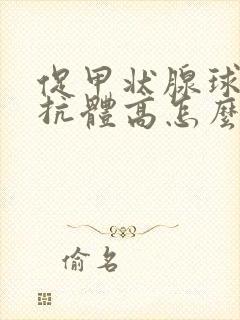 促甲状腺球
抗體高怎麼
偷名